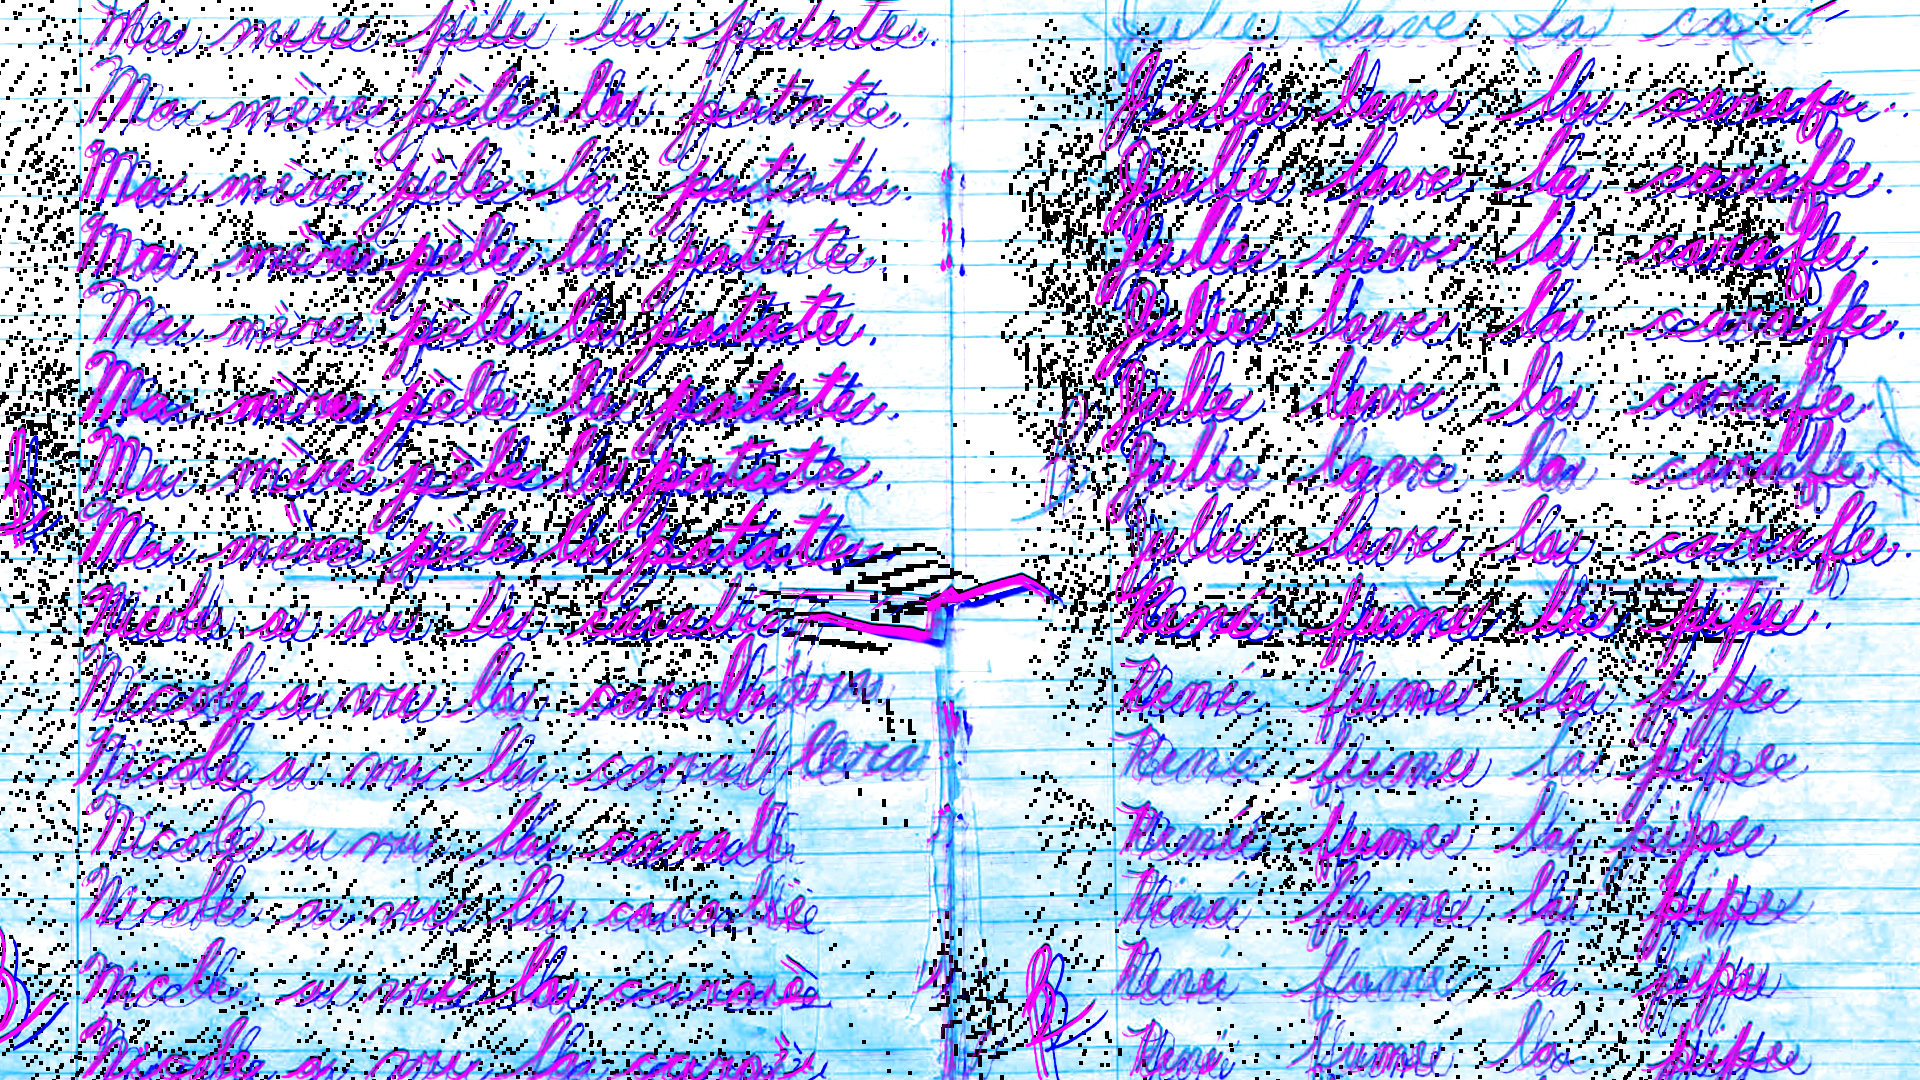 Ma mère pèle la patate.
Ma mère pèle la patate.
Ma mère pèle la patate.
Ma mère pèle la patate.
Ma mère pèle la patate.
Ma mère pèle la patate.
Ma mère pèle la patate.
Ma mère pèle la patate.
Nicole a vu la
Nicole a vu la
Nicole a vu la
Nicole a vu la
Nicole a vu la
Nicole a vu la
Nicole a vu la
Julie lave la
Julie lave la carafe.
Julie lave la carafe.
Julie lave la carafe.
Julie lave la carafe.
Julie lave la carafe.
Julie lave la carafe.
Julie lave la carafe.
Rémi fume la pipe.
Rémi fume la pipe
Rémi fume la pipe
Rémi fume la pipe
Rémi fume la pipe
Rémi fume la pipe
Rémi fume la pipe